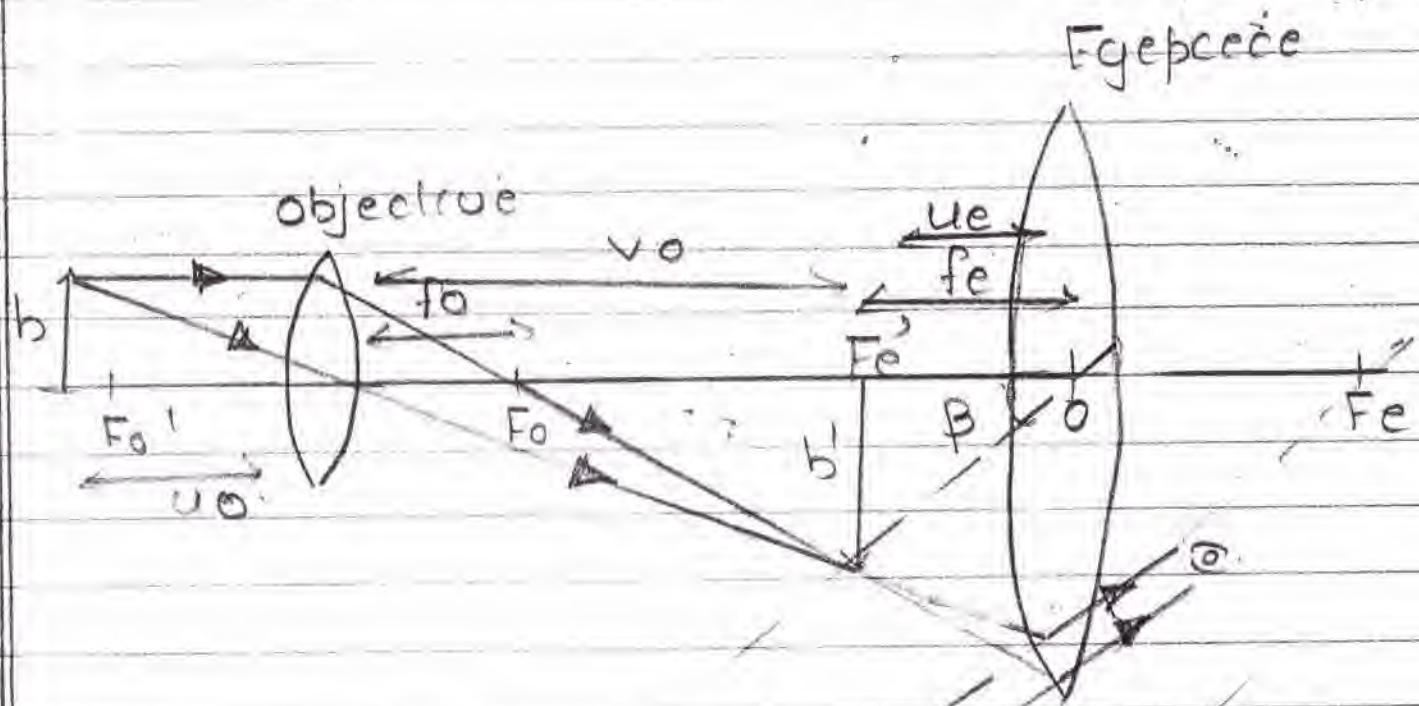 Eyepiece
objective
ue
vo
fe
fo
h
Fe'
Fo'
Fo
β
O
Fe
h'
uo